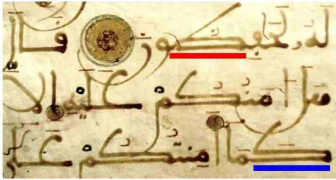 له لحفظون قال
هل امنكم عليه الا
كما امنتكم على